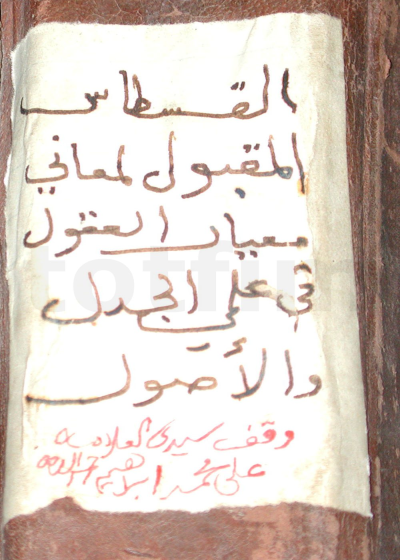 القسطاس
المقبول لمعاني
معيار العقول
في علمي الجدل
والأصول
وقف سيدي العلامة
علي محمد ابراهيم